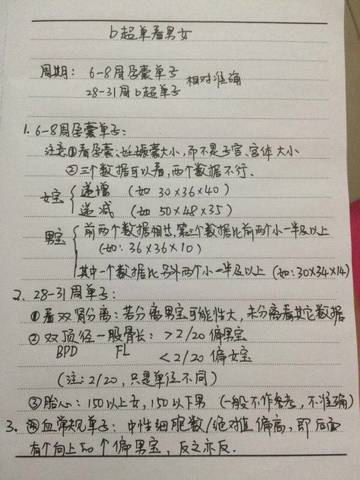 b超单看男女
周期: 6-8周孕囊单子
28-31周b超单子
相对准确
1. 6-8周孕囊单子:
注意①看孕囊、妊娠囊大小,而不是子宫、宫体大小
②三个数据可以看,两个数据不行.
女宝 递增 (如 30×36×40)
递减 (如 50×48×35)
男宝 前两个数据相共,第三个数据比前两个小一半及以上
(如: 36×36×10)
其中一个数据比另外两个小一半及以上 (如:30×34×14)
2. 28-31周单子:
①看双肾分离:若分离男宝可能性大,未分离看其它数据
②双顶径一股骨长: >2/20 偏男宝
BPD FL <2/20 偏女宝
(注: 2/20,只是单径不同)
③胎心: 150以上女, 150以下男 (一般不作参考,不准确)
3. 血常规单子: 中性细胞数/绝对值 偏高,即后面
有个向上的↑偏男宝,反之亦反.